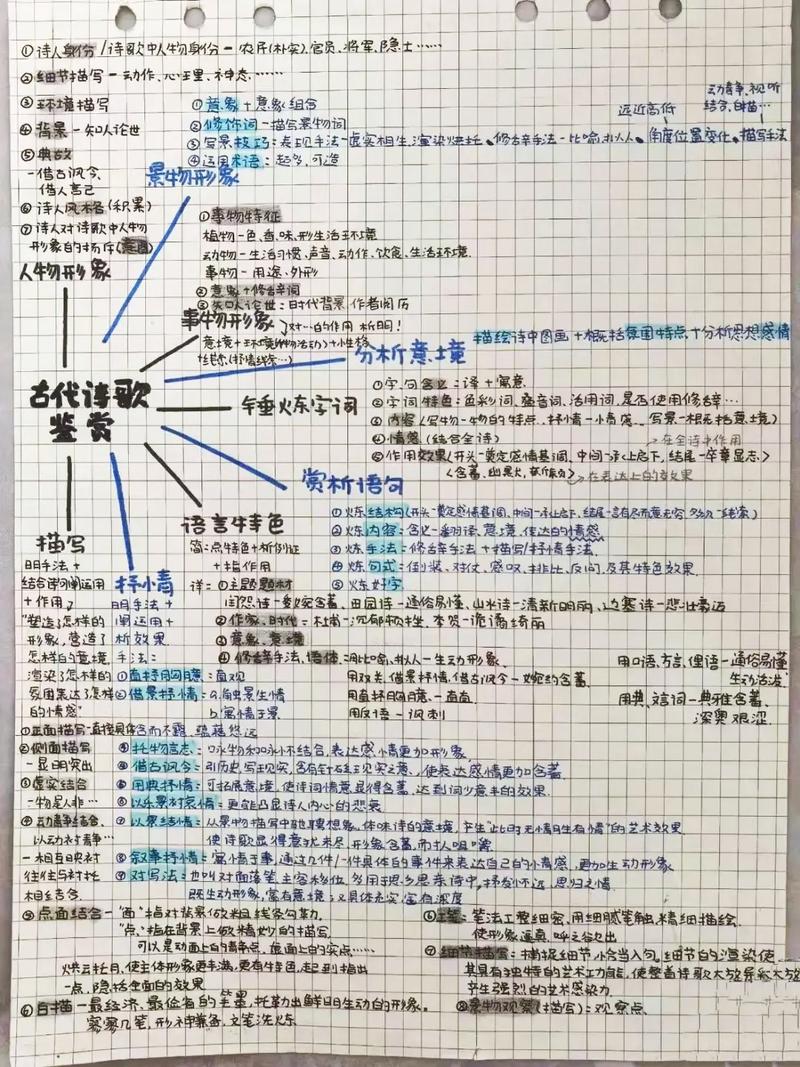 ①诗人身份/诗歌中人物身份-农民(朴实),官员、将军,隐士……
②细节描写-动作、心理、神态……
③环境描写
④背景-知人论世
⑤典故
-借古讽今、
借人言己
⑥诗人风格(积累)
⑦诗人对诗歌中人物
形象的扬抑(意图)
人物形象
①意象+意象组合
②修饰词-描写景物词
动静、视听
远近高低 结合、白描…
③写景技巧:表现手法-虚实相生、渲染烘托、修辞手法-比喻、拟人、角度位置变化、描写手法
④运用术语:起多,可造
景物形象
①事物特征
植物-色、香、味、形生活环境
动物-生活习惯、声音、动作、饮食、生活环境.
事物-用途、外形
②意象+修饰词
③知人论世:时代背景、作者阅历
事物形象
对…的作用 析明!
意境+环境(事物活动)+性格
+线索(抒情线索…)
分析意境
描绘诗中图画+概括氛围特点+分析思想感情
古代诗歌
鉴赏
锤炼字词
①字、句含义:译+寓意
②字词特色:色彩词、叠音词、活用词,是否使用修辞…
③内容(写物-物的特点、抒情-情感、写景-概括意境)
④情感(结合全诗)
→在全诗中作用
⑤作用效果(开头-奠定感情基调、中间-承上启下,结尾-卒章显志.)
→在表达上的效果
赏析语句
①炼结构(开头-奠定感情基调、中间-承上启下,结尾-言有尽而意无穷,多次-线索)
②炼内容:含义-翻译、意境,传达的情感
③炼手法:修辞手法+描写/抒情手法.
④炼句式:倒装、对仗、感叹、排比、反问,及其特色效果.
⑤炼好字.
语言特色
简:点特色+析例证
+指作用
详:①主题题材
闺怨诗-委婉含蓄、田园诗-通俗易懂、山水诗-清新明丽,边塞诗-悲壮豪迈
②作家、时代=杜甫-沉郁顿挫,李贺-诡谲绮丽
③意象、意境
④修辞手法、语体:用比喻、拟人-生动形象.
用双关、借景抒情,借古讽今-婉约含蓄.
用直抒胸臆-直白
用反语-讽刺
用口语、方言、俚语-通俗易懂
生动活泼
用典、文言词-典雅含蓄,
深奥艰涩.
描写
明手法+
结合诗句阐运用
+作用。
"塑造了怎样的
形象,营造了
怎样的意境,
渲染了怎样的
氛围表达了怎样
的情感"
抒情
明手法+
阐运用+
析效果.
手法:
①直抒胸臆:直观
②借景抒情:a.触景生情
b.寓情于景
①正面描写-直接具体
②侧面描写
-显明突出
③虚实结合
-物是人非…
④动静结合.
以动衬静…
-相互映衬
往往与衬托
相结合.
③托物言志:咏物和咏怀结合,表达感情更加形象.
④借古讽今:引历史,写现实,含有针砭现实之意,使表达感情更加含蓄.
⑤用典抒情:可拓展意境,使诗词情意显得含蓄,达到词少意丰的效果.
⑥以乐景衬哀情:更能凸显诗人内心的悲哀
⑦以景结情:从景物描写中驰骋想象,体味诗的意境,产生"此时无情胜有情"的艺术效果.
使诗歌显得意犹未尽,形象含蓄,而扣人咀嚼
⑧叙事抒情:寓情于事,通过几件/一件具体的事件来表达自己的情感,更加生动形象
⑨对写法:也叫对面落笔,主客移位,多用于思乡思亲诗中,抒发怀远、思归之情.
既生动形象,富有意境;又具体充实,富有深度
⑤点面结合-"面"指对背景做粗线条勾勒,
"点"指在背景上做精妙的描写.
可以是动面上的静点,虚面上的实点……
烘云托月,使主体形象更丰满,更有特色,起到指出
一点,隐括全面的效果
⑥白描-最经济、最俭省的笔墨,托勒出鲜明生动的形象。
寥寥几笔,形神兼备,文笔洗炼.
笔法工整细密,用细腻笔触,精细描绘.
使形象逼真,呼之欲出
⑦细节描写:捕捉细节,恰当入句,细节的渲染使
其具有独特的艺术功能,使整首诗歌大放异彩
产生强烈的艺术感染力
⑧景物观察(描写):观察点.